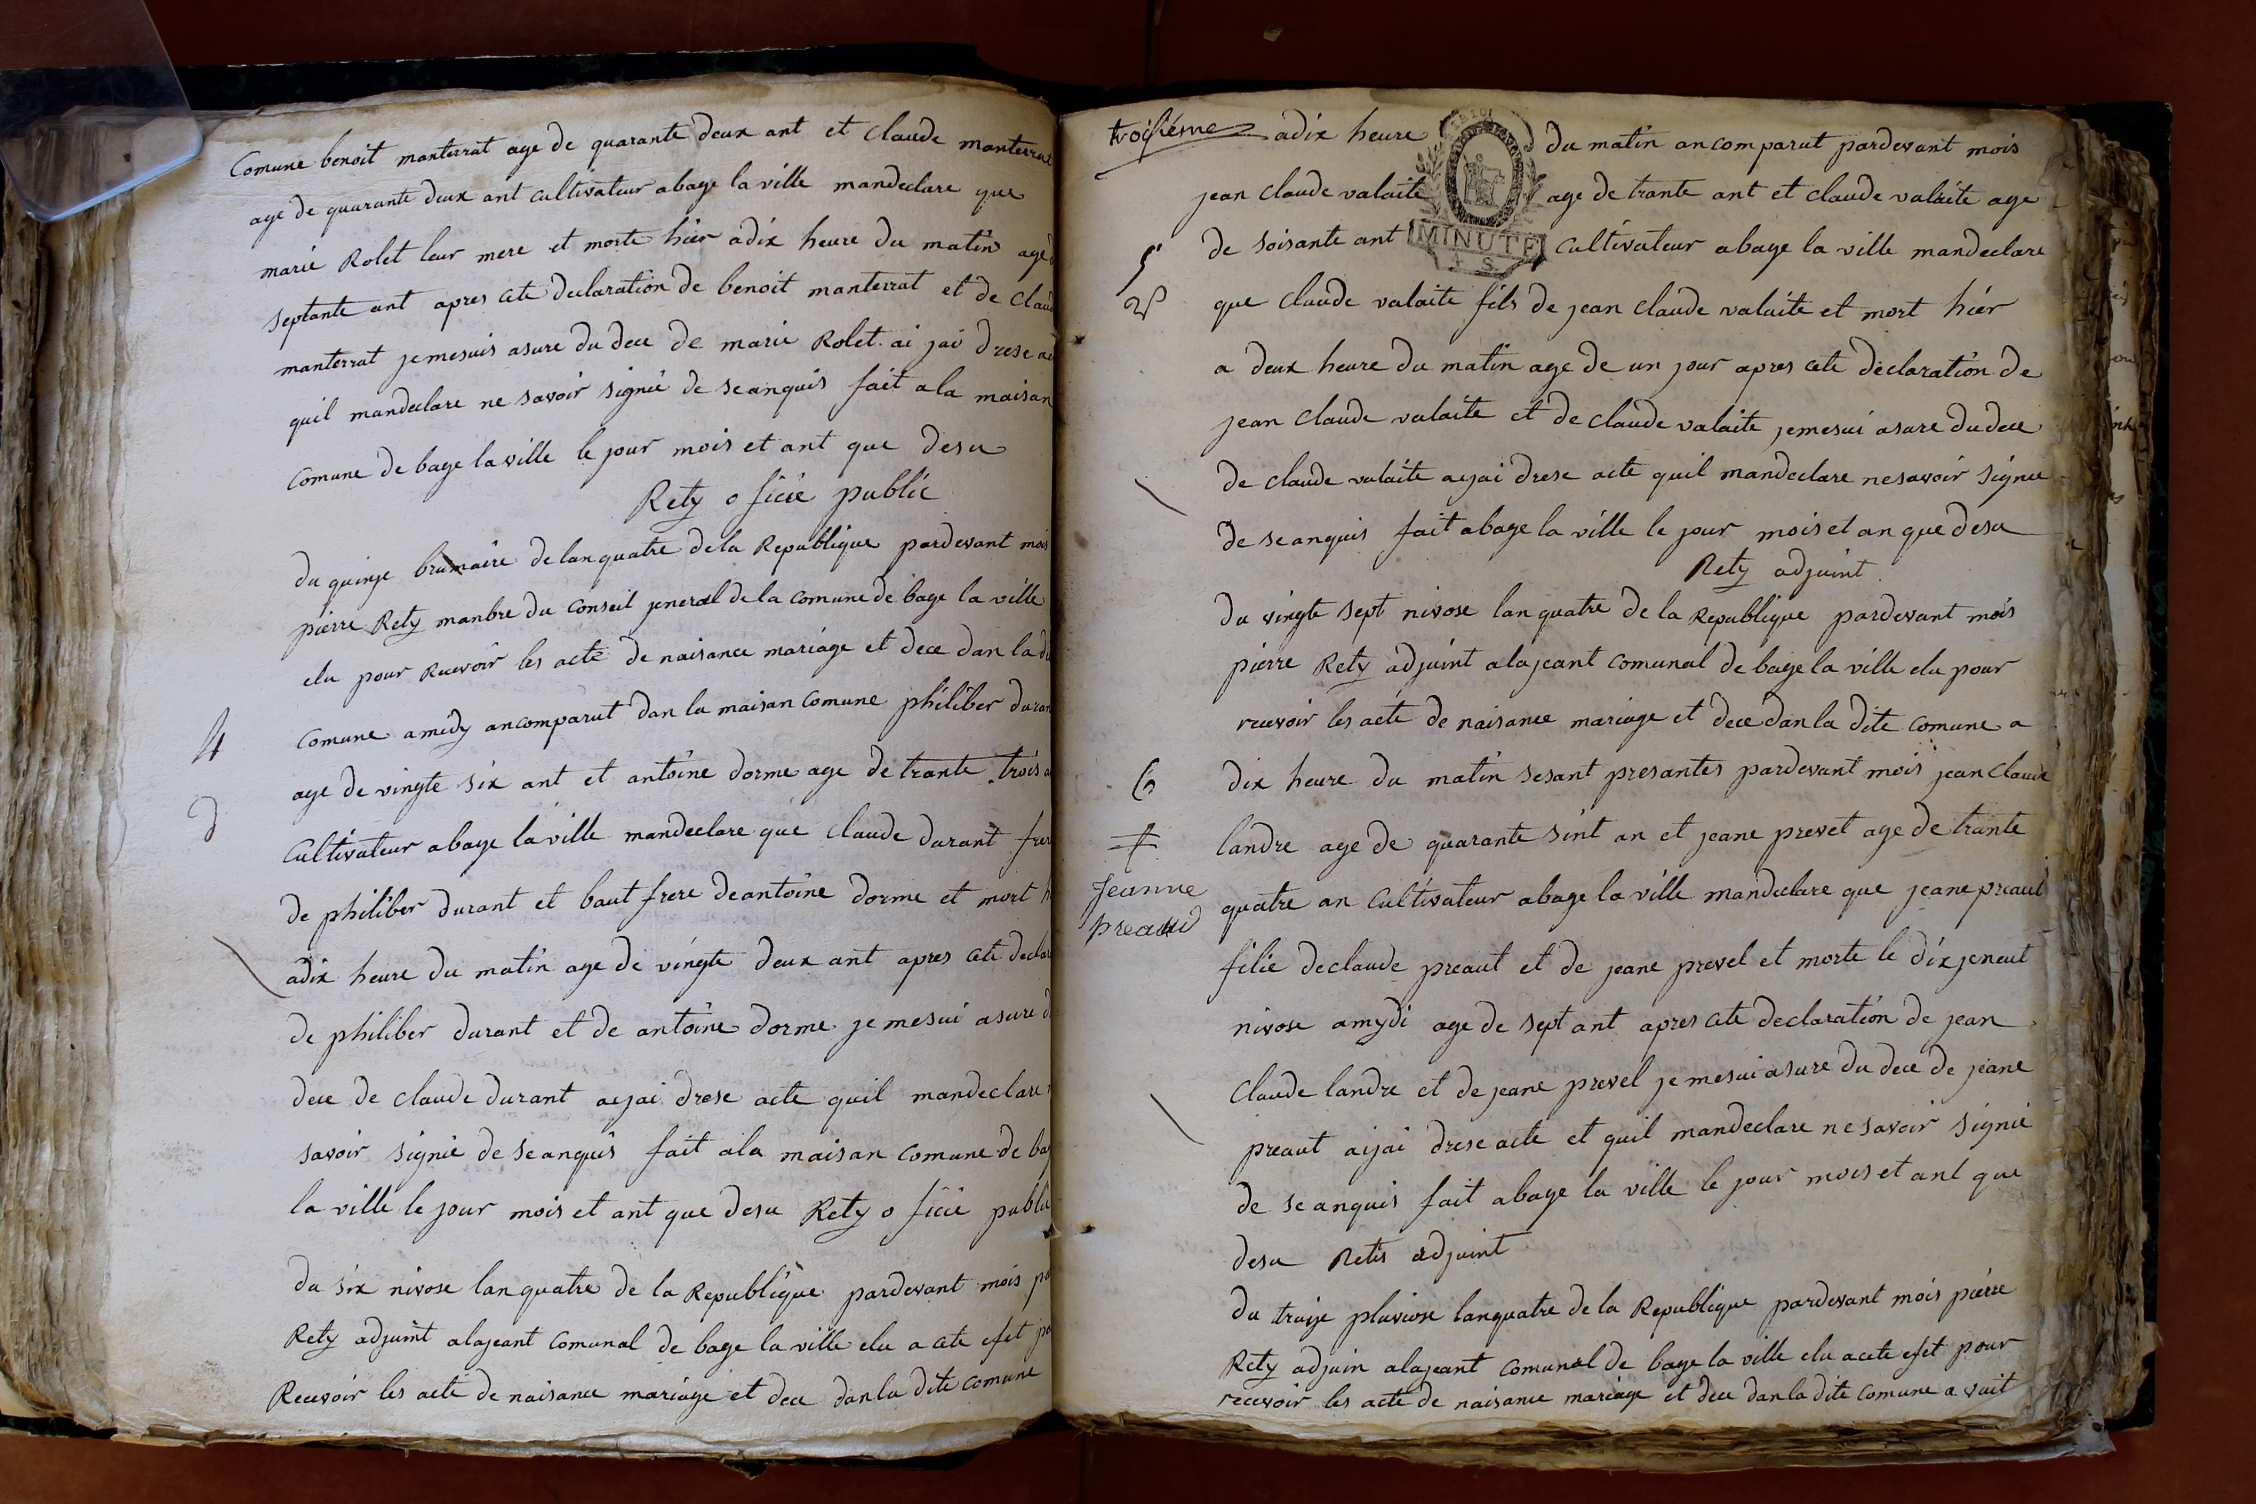 Comune benoit manterrat age de quarante deux ant et Claude manterrat
age de quarante deux ant cultivateur abage la ville mandeclare que
marie Rolet leur mere et morte hier adix heure du matin age
septante ant apres cete declaration de benoit manterrat et de Claud
manterrat je mesuis asure du dece de marie Rolet ai jai drese
quil mandeclare ne savoir signié de seanquis fait a la maisan
Comune de bage laville le jour mois et ant que desu
Rety o ficié public
du quinze brumaire delanquatre dela Republique pardevant mois
pierre Rety manbre du Conseil jeneral de la comune de bage la ville
elu pour Recevoir les acte de naisance mariage et dece dan la
4
comune a midy ancomparut dan la maisan comune philiber duran
age de vingte six ant et antoine dorme age de trante trois
d
Cultivateur abage la ville mandeclare que Claude durant frer
de philiber durant et baut frere deantoine dorme et mort
adix heure du matin age de vingte deux ant apres cete declar
de philiber durant et de antoine dorme je mesui asure
dece de claude durant aijai drese acte quil mandeclare
savoir signié de seanquis fait ala maisan comune de bag
la ville le jour mois et ant que desu Rety o ficié public
du six nivose lanquatre de la Republique pardevant mois
Rety adjuint alajeant comunal de bage la ville elu a cete efet
Recevoir les acte de naisance mariage et dece danla dite comune
troisiéme adix heure du matin ancomparut pardevant mois
jean claude valaite age de trante ant et claude valaite age
MINUTE
de soisante ant cultivateur abage la ville mandeclare
5
que claude valaite fils de jean claude valaite et mort hier
a deux heure du matin age de un jour apres cete declaration de
jean claude valaite et de claude valaite jemesui asure du dece
de claude valaite aijai drese acte quil mandeclare nesavoir signie
de seanquis fait abage la ville le jour mois et an que desu
Rety adjuint
du vingte sept nivose lan quatre de la Republique pardevant mois
pierre Rety adjuint alajeant comunal de bage la ville elu pour
recevoir les acte de naisance mariage et dece dan la dite comune a
6
dix heure du matin sesant presantes pardevant mois jean Claude
landre age de quarante sint an et jeane prevet age de trante
Jeanne
preaud
quatre an cultivateur abage la ville mandeclare que jeane preaut
filie declaude preaut et de jeane prevel et morte le dixjeneut
nivose amydi age de sept ant apres cete declaration de jean
Claude landre et de jeane prevel je mesui asure du dece de jeane
preaut aijai drese acte et quil mandeclare ne savoir signié
de seanquis fait abage la ville le jour mois et ant que
desu Retis adjuint
du traize pluviose lanquatre de la Republique pardevant mois pierre
Rety adjuin alajeant comunal de bage la ville elu acete efet pour
recevoir les acte de naisance mariage et dece dan la dite comune a vuit